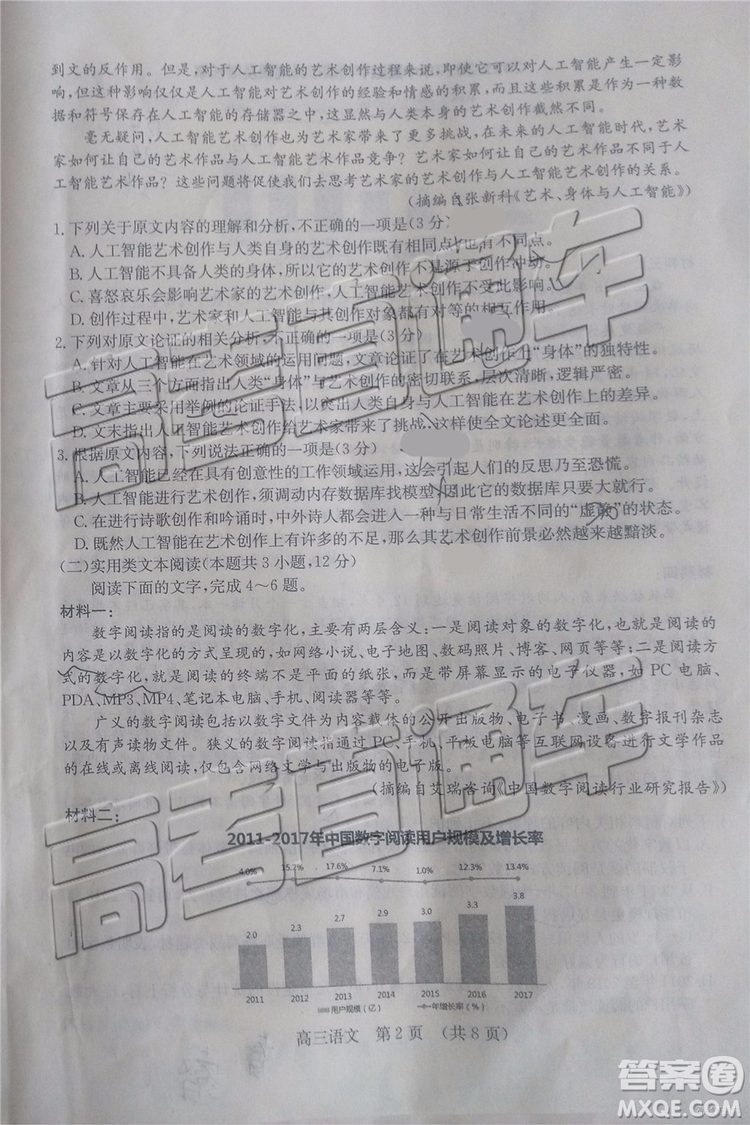 到文的反作用。但是，对于人工智能的艺术创作过程来说，即使它可以对人工智能产生一定影
响，但这种影响仅仅是人工智能对艺术创作的经验和情感的积累，而且这种积累是作为一种数
据和符号保存在人工智能的存储器之中，这显然与人类本身的艺术创作截然不同。
毫无疑问，人工智能艺术创作也为艺术家带来了更多挑战，在未来的人工智能时代，艺术
家如何让自己的艺术作品与人工智能艺术作品竞争？艺术家如何让自己的艺术作品不同于人
工智能艺术作品？这些问题将促使我们去思考艺术家的艺术创作与人工智能艺术创作的关系。
（摘编自张新科《艺术、身体与人工智能》）
1. 下列关于原文内容的理解和分析，不正确的一项是(3分)
A. 人工智能艺术创作与人类自身的艺术创作既有相同点，也有不同点。
B. 人工智能不具备人类的身体，所以它的艺术创作不是源于创作冲动。
C. 喜怒哀乐会影响艺术家的艺术创作，而人工智能的创作不受此影响。
D. 创作过程中，艺术家和人工智能与其创作对象都有对等的相互作用。
2. 下列对原文论证的相关分析，不正确的一项是(3分)
A. 针对人工智能在艺术领域的运用问题，文章论证了在艺术创作上“身体”的独特性。
B. 文章从三个方面指出人类“身体”与艺术创作的密切联系，层次清晰，逻辑严密。
C. 文章主要采用举例的论证手法，以突出人类与人工智能在艺术创作上的差异。
D. 文末指出人工智能艺术创作给艺术家带来了挑战，这样使全文论述更全面。
3. 根据原文内容，下列说法正确的一项是(3分)
A. 人工智能已经在具有创意性的工作领域运用，这会引起人们的反思乃至恐慌。
B. 人工智能进行艺术创作，须调动内存数据库找模型，因此它的数据库只要大就行。
C. 在进行诗歌创作和吟诵时，中外诗人都会进入一种与日常生活不同的“虚静”的状态。
D. 既然人工智能艺术创作有许多的不足，那么我们可以推断它的创作前景必然越来越黯淡。
(二)实用类文本阅读(本题共3小题，12分)
阅读下面的文字，完成4～6题。
材料一：
数字阅读指的是阅读的数字化，主要有两层含义：一是阅读对象的数字化，也就是阅读的
内容是以数字化的方式呈现的，如网络小说、电子地图、数码照片、博客、网页等等；二是阅读方
式的数字化，就是阅读的终端不是平面的纸张，而是带屏幕显示的电子仪器，如PC电脑、
PDA、MP3、MP4、笔记本电脑、手机、阅读器等等。
广义的数字阅读包括以数字文件为内容载体的公开出版物、电子书、漫画、数字报刊杂志
以及有声读物文件。狭义的数字阅读指通过PC、手机、平板电脑等互联网设备进行文学作品
的在线或离线阅读，仅包含网络文学与出版物的电子版。
（摘编自艾瑞咨询《中国数字阅读行业研究报告》）
材料二：
2011-2017年中国数字阅读用户规模及增长率
4.0% 15.2% 17.6% 7.1% 1.0% 12.3% 13.4%
2.0 2.3 2.7 2.9 3.0 3.3 3.8
2011 2012 2013 2014 2015 2016 2017
用户规模（亿） 年增长率（%）
高三语文 第2页 （共8页）
高考直通车
高考直通车
答案圈
MXQE.COM